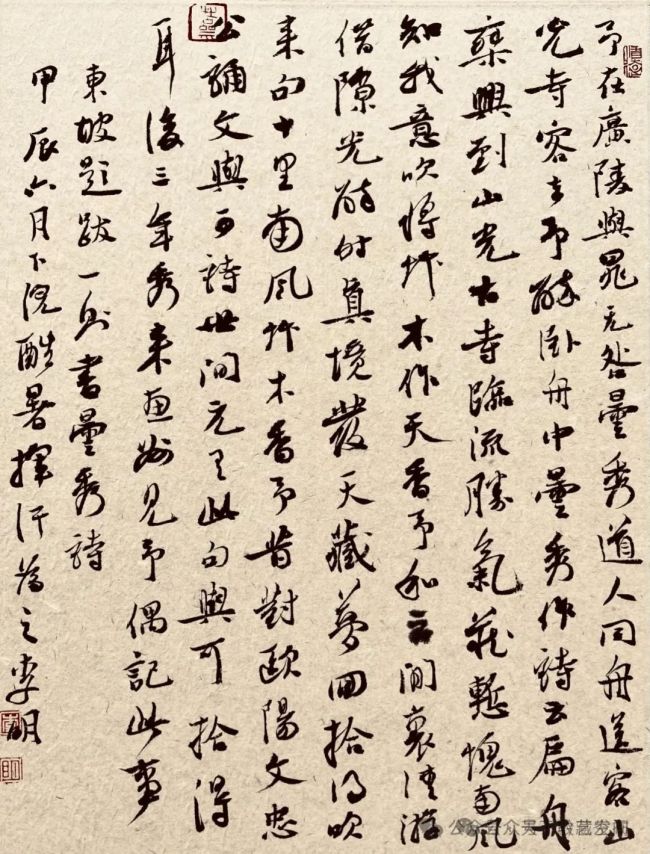 予在廣陵與晁无咎曇秀道人同舟送客山
光寺客去予醉卧舟中曇秀作詩云扁舟
乘興到山光古寺臨流勝氣藏慙愧南風
知我意吹將草木作天香予和云閒裏清游
借隙光醉時真境發天藏夢回拾得吹
来句十里南風草木香予昔對歐陽文忠
公誦文與可詩世間元有此句與可拾得
耳後三年秀来惠州見予偶記此事
東坡題跋一則書曇秀詩
甲辰六月下浣酷暑揮汗為之李明